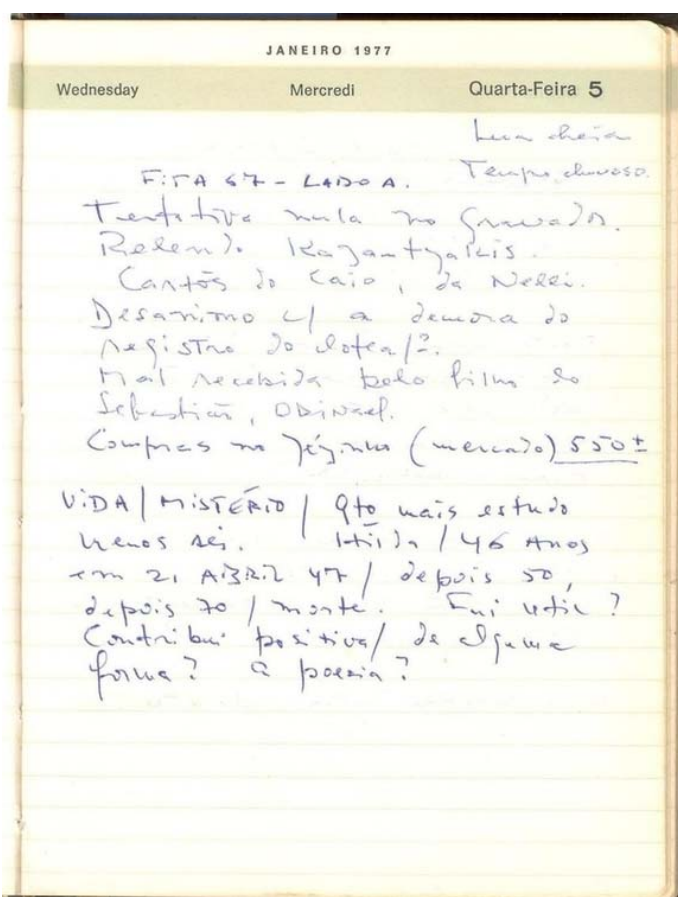 JANEIRO 1977
Wednesday Mercredi Quarta-Feira 5
Lua cheia
Tempo chuvoso.
FITA 67 - LADO A.
Tentativa nula no gravador.
Relendo Kazantzakis.
Cartas do Caio, da Nelli.
Desanimo c/ a demora do
registro do
Mal recebida pelo filho do
Sebastião,
Compras no Zézinho (mercado) 550±
VIDA / MISTÉRIO / Qto mais estudo
menos sei. Hilda / 46 Anos
em 21 ABRIL 47 / depois 50,
depois 70 / morte. Fui util?
Contribui positiva/ de alguma
forma? a poesia?